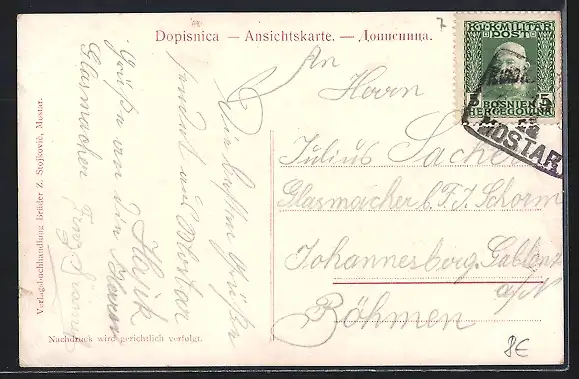 7
Dopisnica — Ansichtskarte. — Дописница.
K.u.K. MILITÄR
POST
5 5
BOSNIEN
HERCEGOVINA
MOSTAR
An
Herrn
Julius Sacher
Glasmacher b. F. J. Schorm
Johannesberg Gablonz
a/N
Böhmen
Die besten Grüße
sendet aus Mostar
Grüße an die Herren
Glasmacher
Verlagsbuchhandlung Brüder Z. Stojković, Mostar.
Nachdruck wird gerichtlich verfolgt.
8€